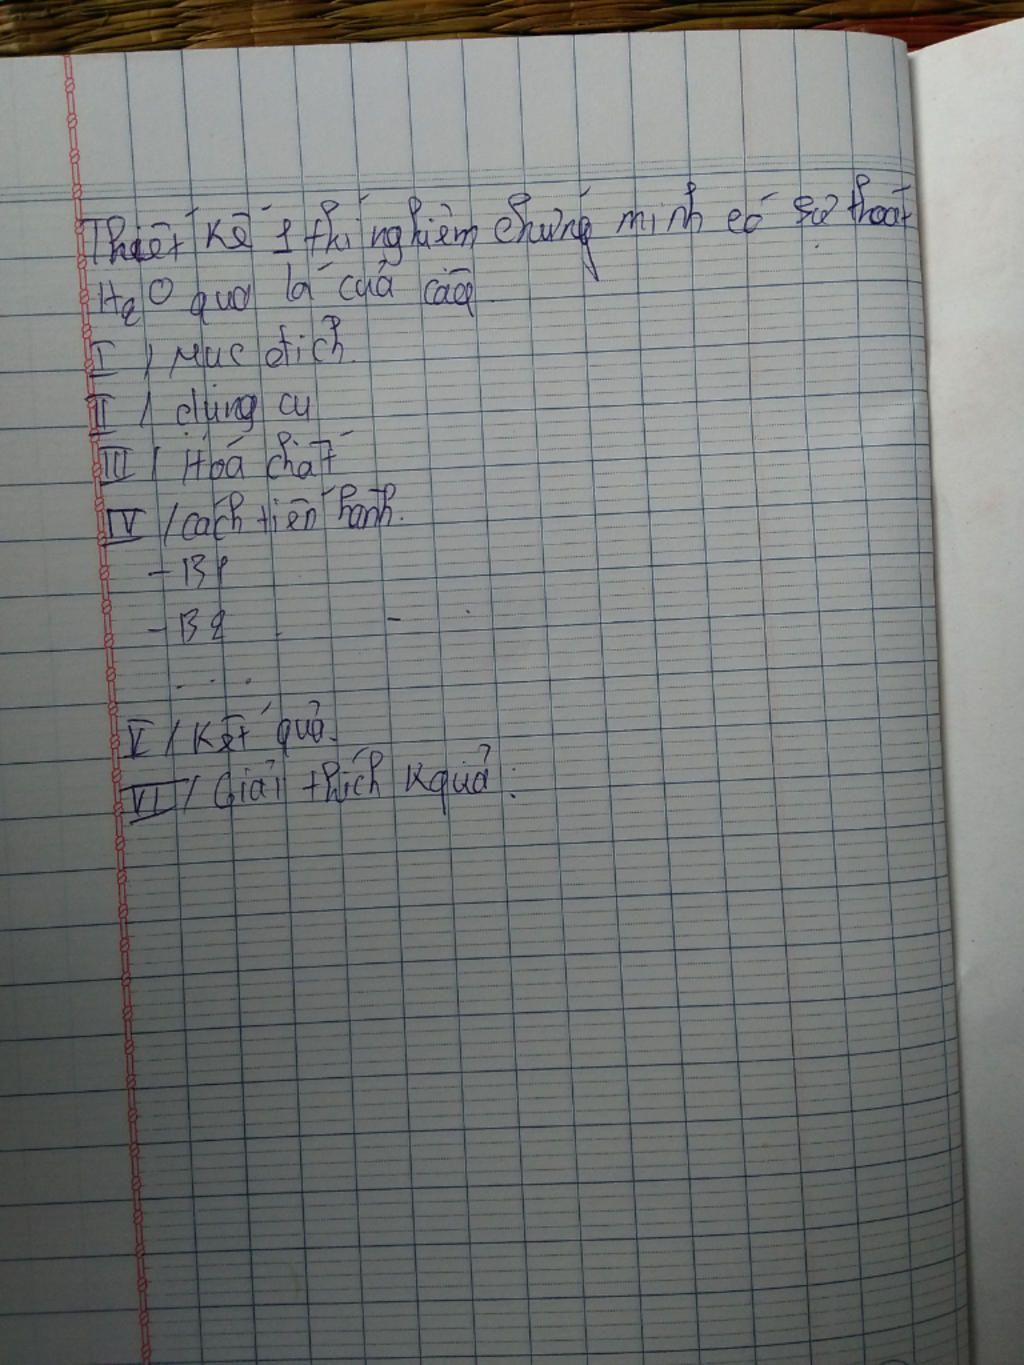 Thiết kế 1 thí nghiệm chứng minh có sự thoát
H2O qua lá của cây
I / Mục đích.
II / dụng cụ
III / Hoá chất
IV / cách tiến hành.
- B1
- B2 -
. . .
V / Kết quả.
VI / Giải thích kquả :